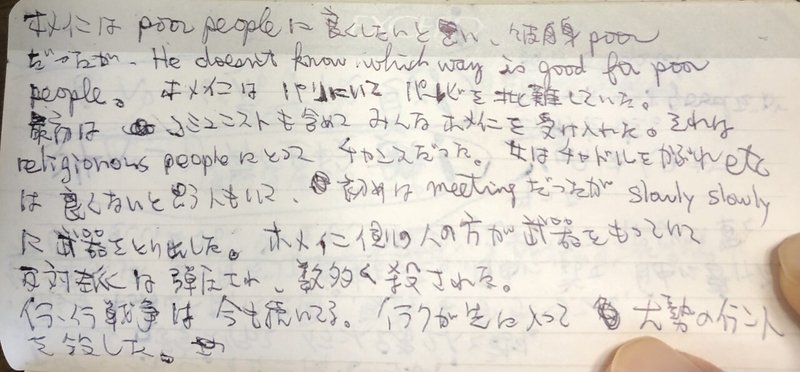 ホメイニは poor people に良くしたいと思い、彼自身 poor
だったが、He doesn't know which way is good for poor
people。 ホメイニは パリにいて パーレビを批難していた。
最初は コミュニストも含めて みんなホメイニを受け入れた。それは
religionous people にとって チャンスだった。女はチャドルをかぶれ etc
は良くないと思う人もいて、初めは meeting だったが slowly slowly
に武器をとり出した。ホメイニ側の人の方が武器をもっていて
反対派は弾圧され、数多く殺された。
イ、イ戦争は今も続いてる。イラクが先に入って 大勢のイラン人
を殺した。